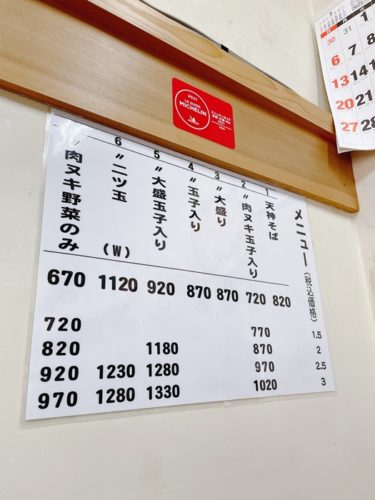 メニュー(税込価格) 1.5 2 2.5 3
1 天神そば 820
2 〃肉ヌキ玉子入り 720 770 870 970 1020
3 〃大盛り 870
4 〃玉子入り 870
5 〃大盛玉子入り 920 1180 1280 1330
6 〃二ツ玉 (W) 1120 1230 1280
〃肉ヌキ野菜のみ 670 720 820 920 970
MICHELIN
30 31 1
6 7
13 14
20 21
27 28